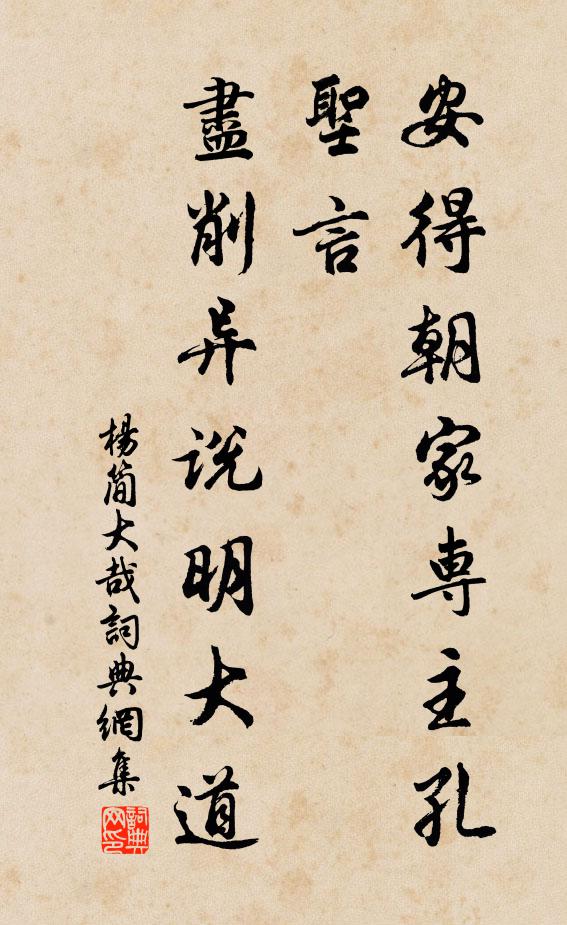 安得朝家専主孔
聖言
盡削异説明大道
楊簡大哉詞典網集
詞典网印